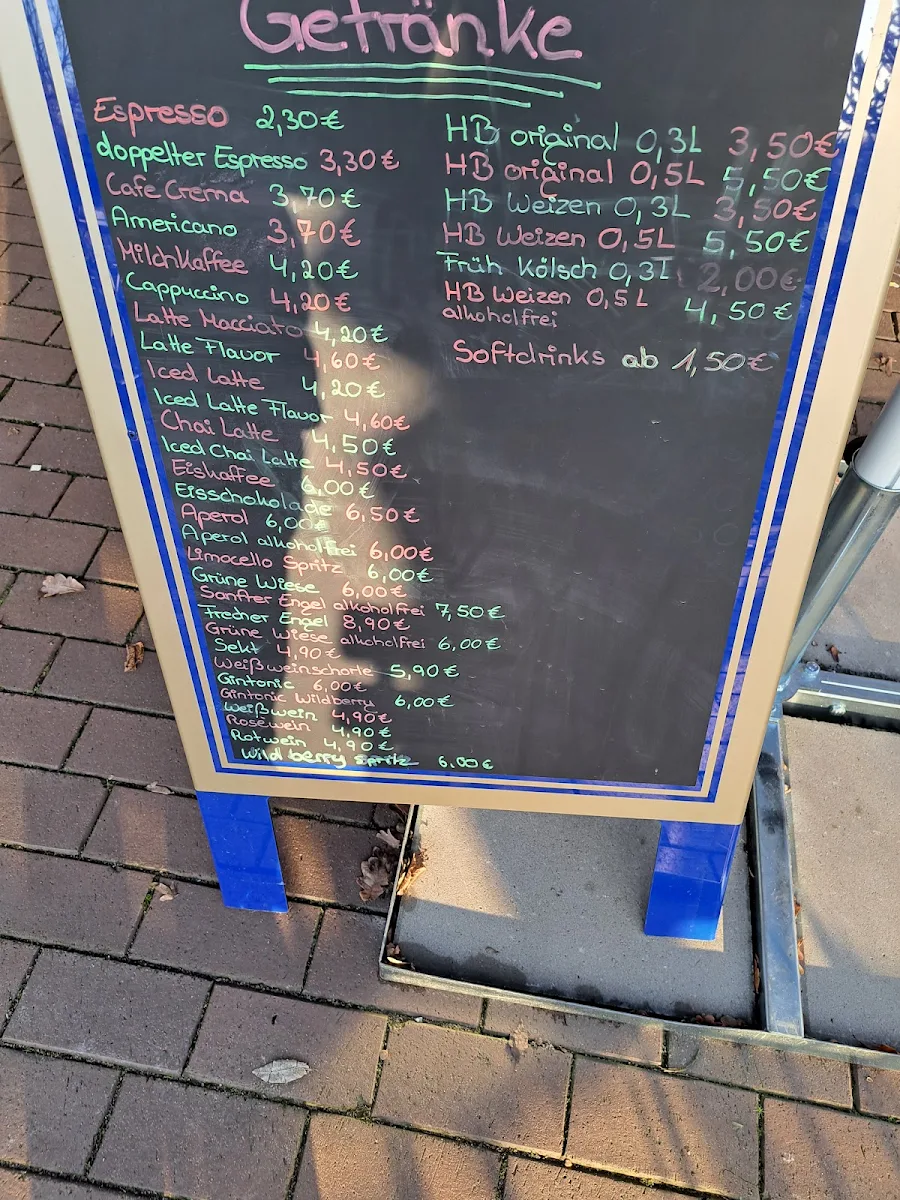 Getränke
Espresso 2,30€
doppelter Espresso 3,30€
Cafe Crema 3,70€
Americano 3,70€
Milchkaffee 4,20€
Cappuccino 4,20€
Latte Macciato 4,20€
Latte Flavor 4,60€
Iced Latte 4,20€
Iced Latte Flavor 4,60€
Chai Latte 4,50€
Iced Chai Latte 4,50€
Eiskaffee 6,00€
Eisschokolade 6,50€
Aperol 6,00€
Aperol alkoholfrei 6,00€
Limocello Spritz 6,00€
Grüne Wiese 6,00€
Sanfter Engel alkoholfrei 7,50€
Frecher Engel 8,90€
Grüne Wiese alkoholfrei 6,00€
Sekt 4,90€
Weißweinschorle 5,90€
Gintonic 6,00€
Gintonic Wildberry 6,00€
Weißwein 4,90€
Roséwein 4,90€
Rotwein 4,90€
Wildberry Spritz 6,00€
HB original 0,3L 3,50€
HB original 0,5L 5,50€
HB Weizen 0,3L 3,50€
HB Weizen 0,5L 5,50€
Früh Kölsch 0,3L 2,00€
HB Weizen 0,5L 4,50€
alkoholfrei
Softdrinks ab 1,50€